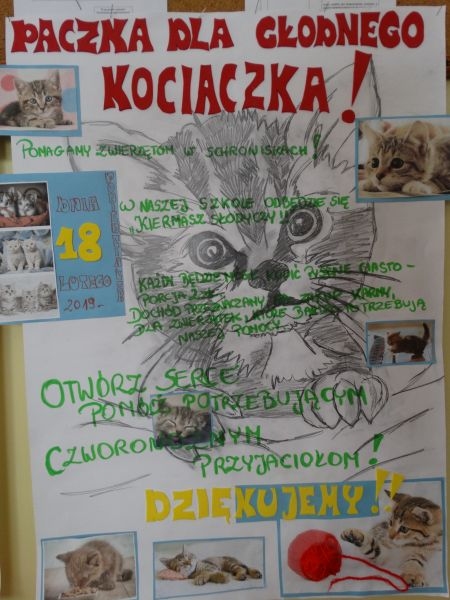 PACZKA DLA GŁODNEGO
KOCIACZKA!
POMAGAMY ZWIERZĘTOM W SCHRONISKACH!
DNIA
18
LUTEGO
2019r.
W NASZEJ SZKOLE ODBĘDZIE SIĘ
„KIERMASZ SŁODYCZY"!!
KAŻDY BĘDZIE MÓGŁ KUPIĆ PYSZNE CIASTO –
PORCJA 2 ZŁ
DOCHÓD PRZEZNACZAMY NA ZAKUP KARMY
DLA ZWIERZĄTEK, KTÓRE BARDZO POTRZEBUJĄ
NASZEJ POMOCY.
OTWÓRZ SERCE
POMÓŻ POTRZEBUJĄCYM
CZWORONOŻNYM
PRZYJACIOŁOM!
DZIĘKUJEMY!!